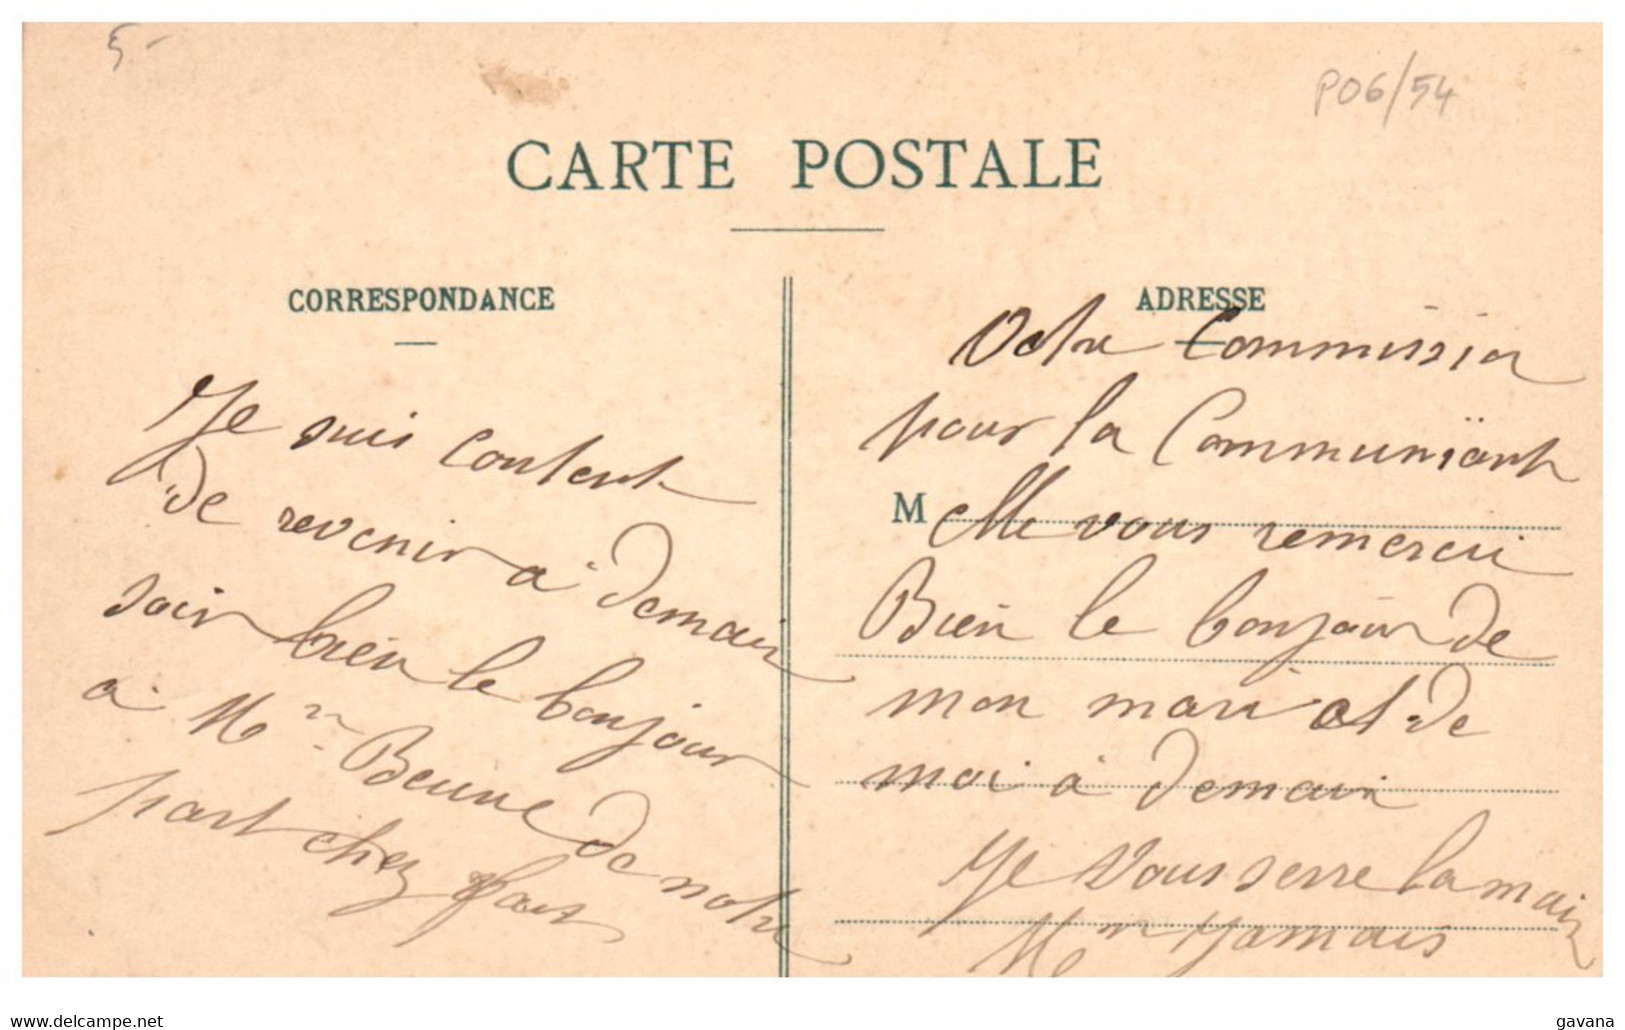 5-
P06/54
CARTE POSTALE
CORRESPONDANCE
Je suis content
de revenir a demain
soir bien le bonjour
a Mr Beune de notre
part chez
ADRESSE
Votre Commission
pour la Communiant
M elle vous remerci
Bien le bonjour de
mon mari et de
moi à demain
Je vous serre la main
Mm Jamais
www.delcampe.net
gavana